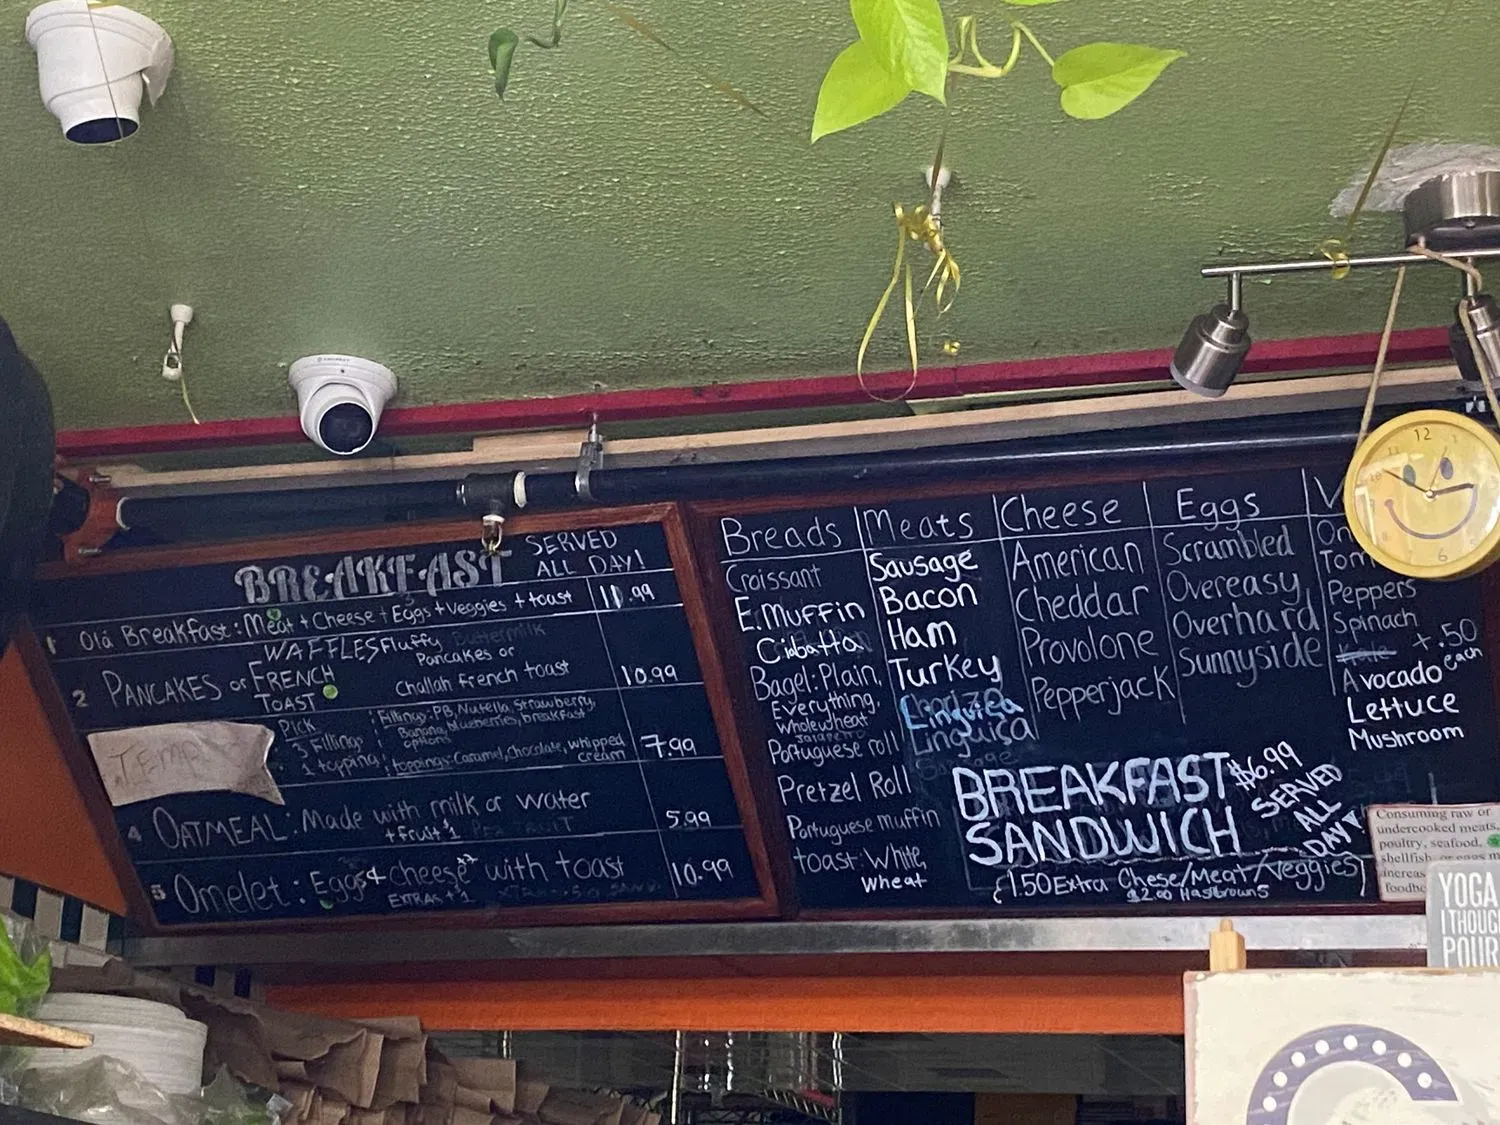 BREAKFAST SERVED
ALL DAY!
1 Olá Breakfast: Meat + Cheese + Eggs + Veggies + toast 11.99
WAFFLES Fluffy Buttermilk
2 PANCAKES or FRENCH TOAST Pancakes or
Challah french toast 10.99
TEMP
PICK
3 Fillings
1 topping
Fillings: PB, Nutella, Strawberry,
Banana, blueberries, breakfast
options
toppings: Caramel, Chocolate, whipped
cream 7.99
4 OATMEAL: Made with milk or water
+ fruit $1 5.99
5 Omelet: Eggs & cheese with toast 10.99
EXTRAS + 1
Breads
Croissant
E. Muffin
Ciabatta
Bagel: Plain,
Everything,
Wholewheat
Jalapeño
Portuguese roll
Pretzel Roll
Portuguese muffin
toast: White,
Wheat
Meats
Sausage
Bacon
Ham
Turkey
Linguiça
Linguiça
Sausage
Cheese
American
Cheddar
Provolone
Pepperjack
Eggs
Scrambled
Overeasy
Overhard
Sunnyside
V
On
Tom
Peppers
Spinach
Kale
Avocado +.50 each
Lettuce
Mushroom
BREAKFAST
SANDWICH
$6.99
SERVED
ALL
DAY
1.50 Extra Chese/Meat/Veggies
$2.00 Hasbrowns
12
6
Consuming raw or
undercooked meats,
poultry, seafood,
shellfish or eggs m
increas
foodbo
YOGA
I THOUG
POUR